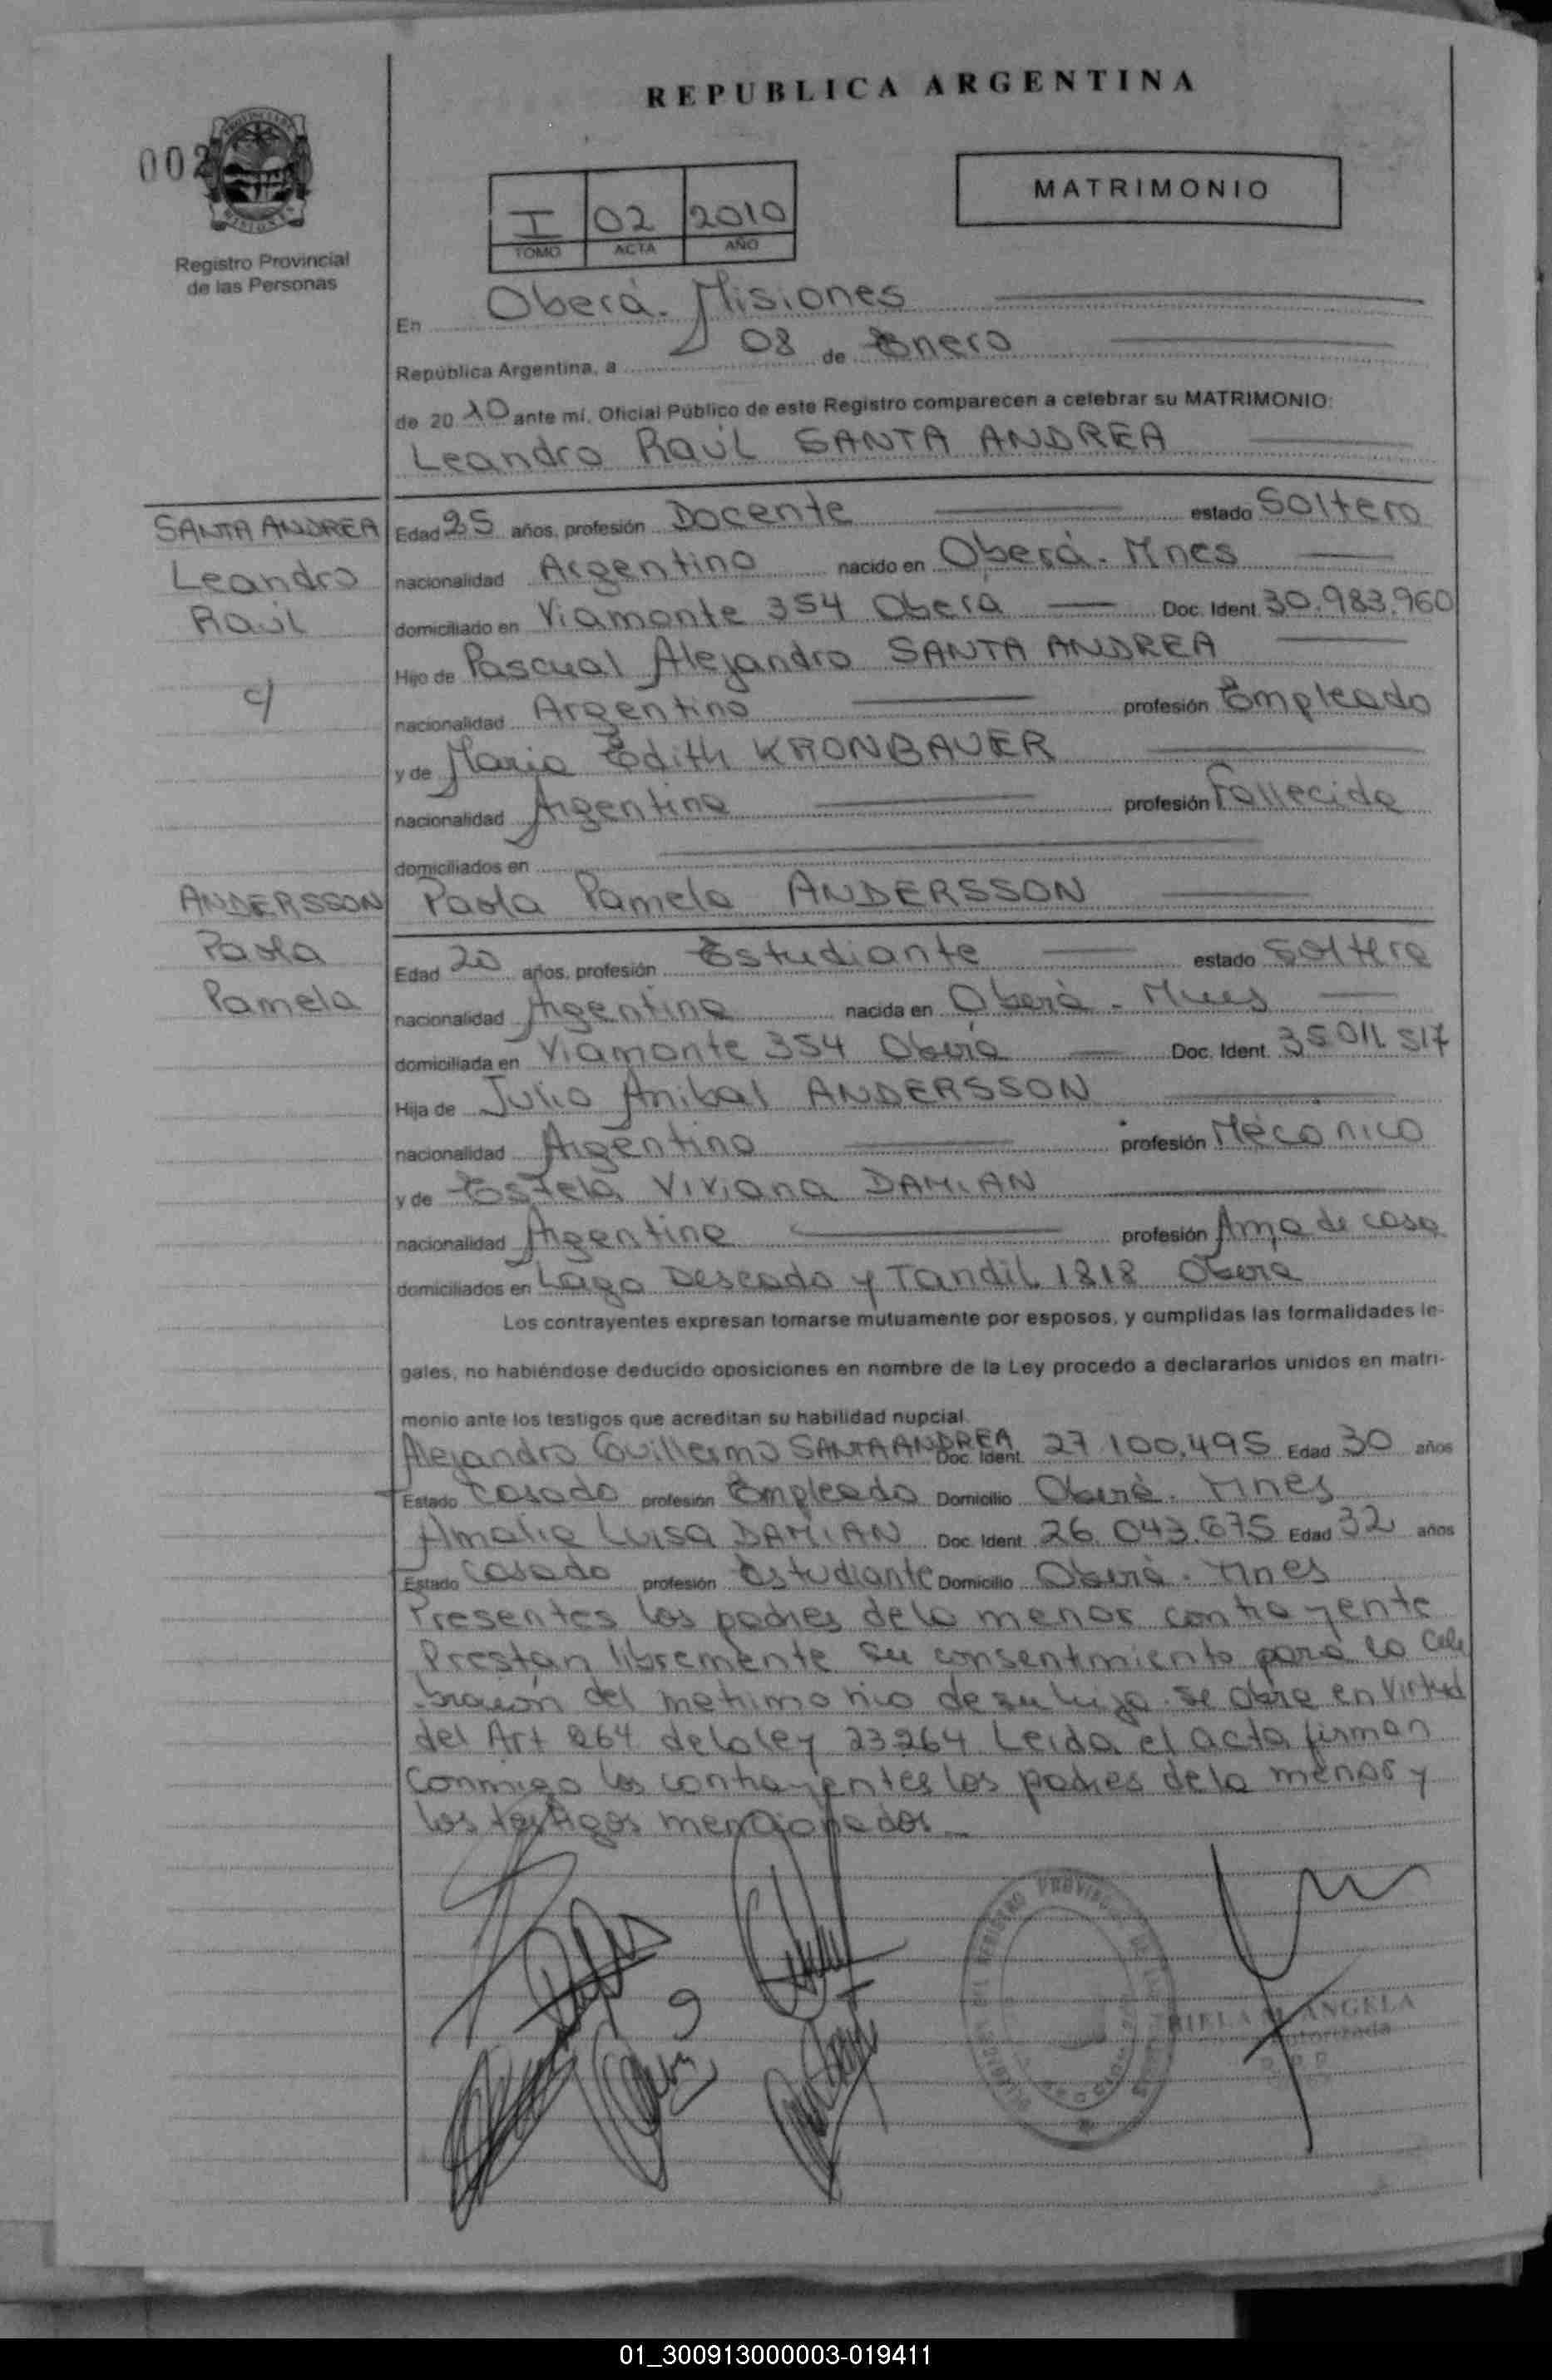 REPUBLICA ARGENTINA
002
PROVINCIA DE
MISIONES
Registro Provincial
de las Personas
I 02 2010
TOMO ACTA AÑO
MATRIMONIO
En Oberá. Misiones
República Argentina, a 08 de Enero
de 20 10 ante mí, Oficial Público de este Registro comparecen a celebrar su MATRIMONIO:
Leandro Raúl SANTA ANDREA
SANTA ANDREA
Leandro
Raúl
c/
ANDERSSON
Paola
Pamela
Edad 25 años, profesión Docente estado Soltero
nacionalidad Argentino nacido en Oberá - Mnes
domiciliado en Viamonte 354 Oberá Doc. Ident. 30.983.960
Hijo de Pascual Alejandro SANTA ANDREA
nacionalidad Argentino profesión Empleado
y de Maria Edith KRONBAUER
nacionalidad Argentina profesión Fallecida
domiciliados en
Paola Pamela ANDERSSON
Edad 20 años, profesión Estudiante estado Soltera
nacionalidad Argentina nacida en Oberá - Mnes
domiciliada en Viamonte 354 Oberá Doc. Ident. 35.011.517
Hija de Julio Anibal ANDERSSON
nacionalidad Argentino profesión Mécanico
y de Estela Viviana DAMIAN
nacionalidad Argentina profesión Ama de casa
domiciliados en Lago Deseado y Tandil 1818 Obera
Los contrayentes expresan tomarse mutuamente por esposos, y cumplidas las formalidades le-
gales, no habiéndose deducido oposiciones en nombre de la Ley procedo a declararlos unidos en matri-
monio ante los testigos que acreditan su habilidad nupcial.
Alejandro Guillermo SANTA ANDREA Doc. Ident. 27.100.495 Edad 30 años
Estado Casado profesión Empleado Domicilio Oberá - Mnes
Amalia Luisa DAMIAN Doc. Ident. 26.043.675 Edad 32 años
Estado Casada profesión Estudiante Domicilio Oberá - Mnes
Presentes los padres de la menor contrayente
Prestan libremente su consentimiento para la cele
bración del matrimonio de su hija. Se obra en virtud
del Art 264 de la ley 23264 Leida el acta firman
Conmigo los contrayentes los padres de la menor y
los testigos mencionados
ANGELA
01_300913000003-019411